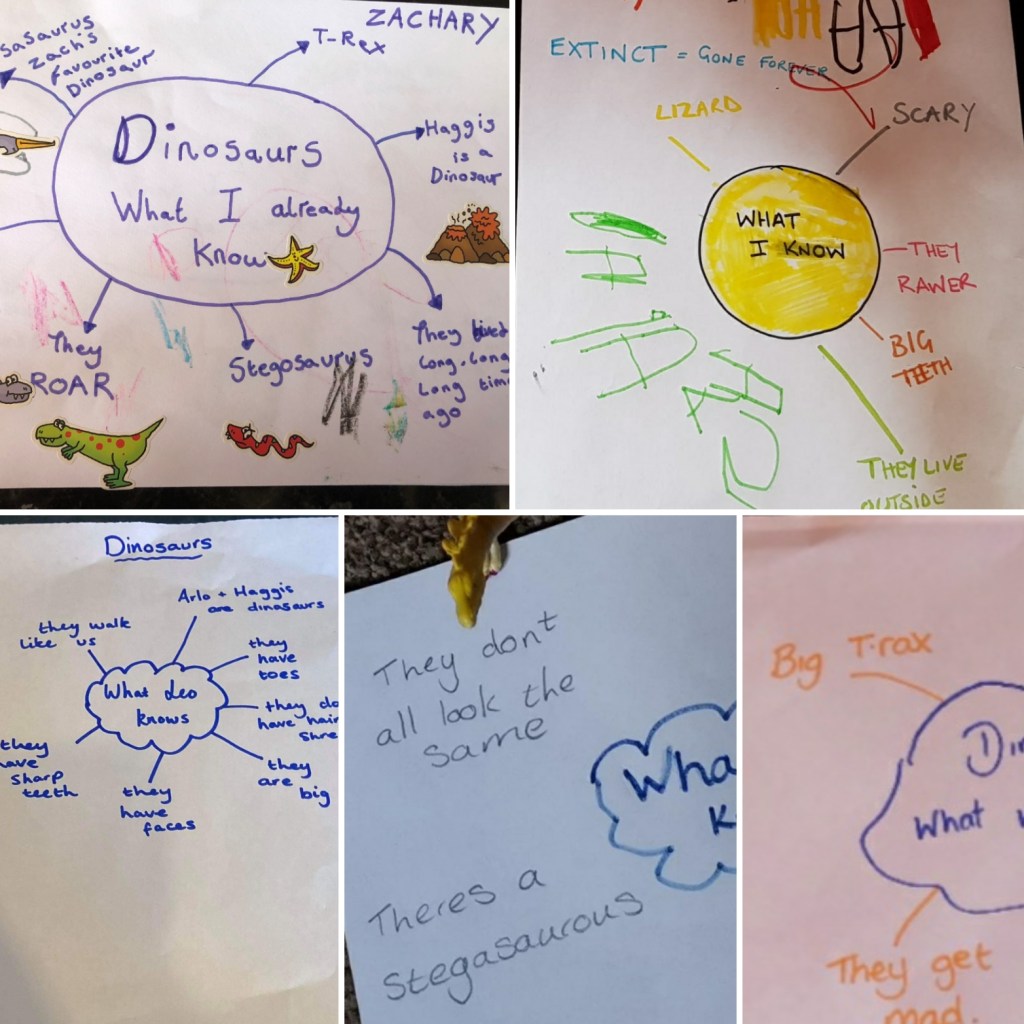 ZACHARY
sasaurus
Zach's
favourite
Dinosaur
T-Rex
Haggis
is a
Dinosaur
Dinosaurs
What I already
Know
They
ROAR
Stegosaurus
They lived
Long, Long
Long time
ago
EXTINCT = GONE FOREVER
LIZARD
SCARY
WHAT
I KNOW
THEY
RAWER
BIG
TEETH
THEY LIVE
OUTSIDE
Dinosaurs
Arlo + Haggis
are dinasaurs
they walk
like us
they
have
toes
What Leo
knows
they do
have hair
Shre
they
have
sharp
teeth
they
have
faces
they
are big
They dont
all look the
same
Wha
K
Theres a
stegasaurous
Big T-rax
Din
What w
They get
mad.